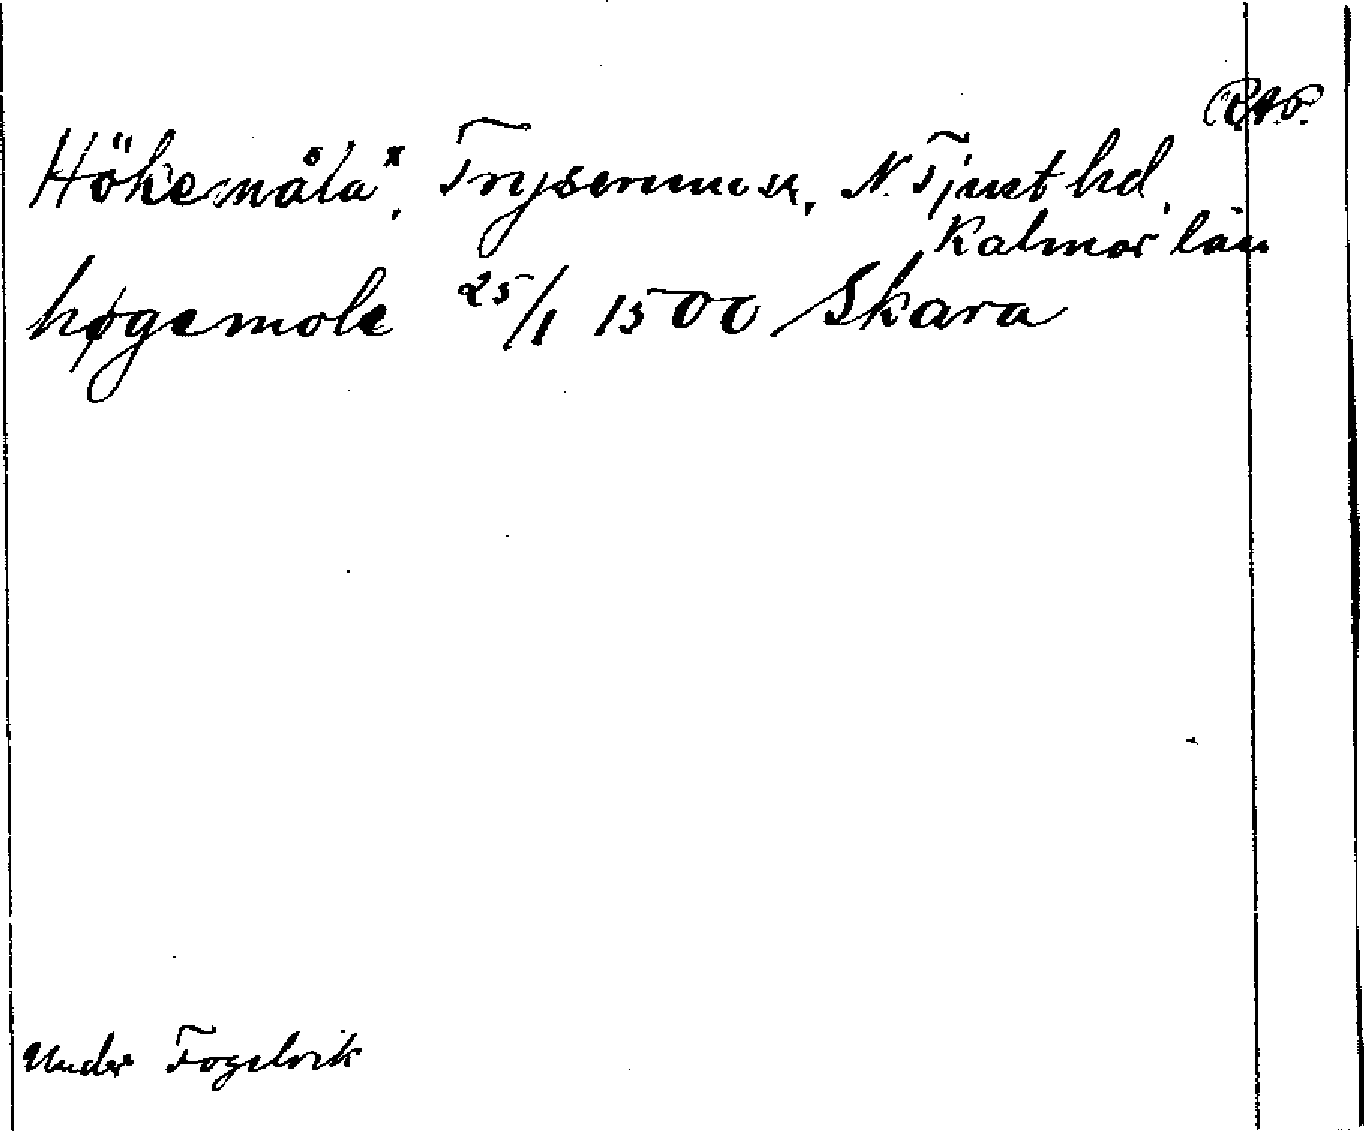 RAP.
Hökemåla x, Tryserum sn, N. Tjust hd,
Kalmar län
høgemole 25/1 1500 Skara
Under Fogelvik